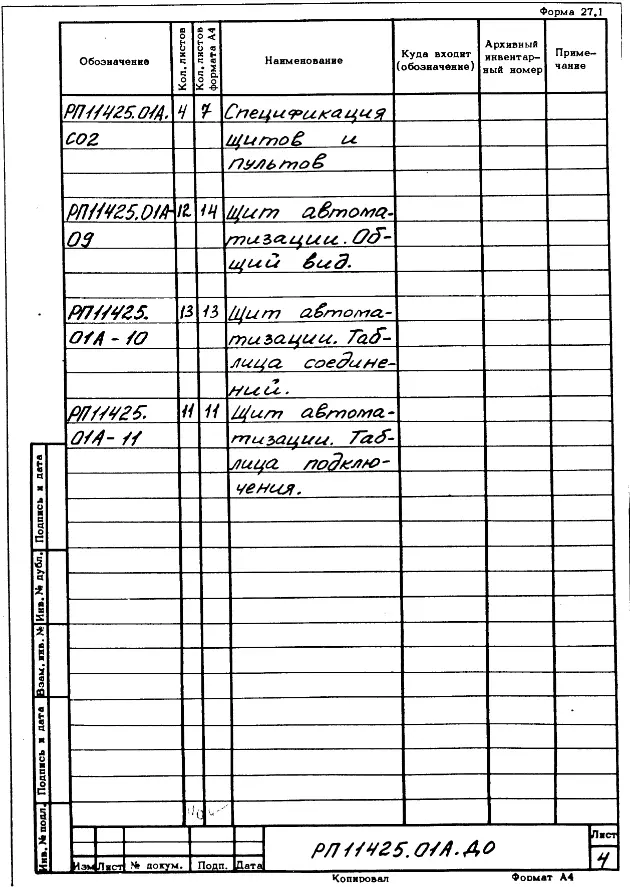 Форма 27.1
Обозначение Кол. листов Кол. листов формата А4 Наименование Куда входит (обозначение) Архивный инвентар- ный номер Приме- чание
РП11425.01А. 4 7 Спецификация
СО2 щитов и
пультов
РП11425.01А- 12 14 Щит автома-
09 тизации. Об-
щий вид.
РП11425. 13 13 Щит автома-
01А-10 тизации. Таб-
лица соедине-
ний.
РП11425. 11 11 Щит автома-
01А-11 тизации. Таб-
лица подклю-
чения.
Подпись и дата
Инв. № дубл.
Взам. инв. №
Подпись и дата
Инв. № подл.
Изм Лист № докум. Подп. Дата
РП11425.01А.ДО
Лист
4
Копировал Формат А4